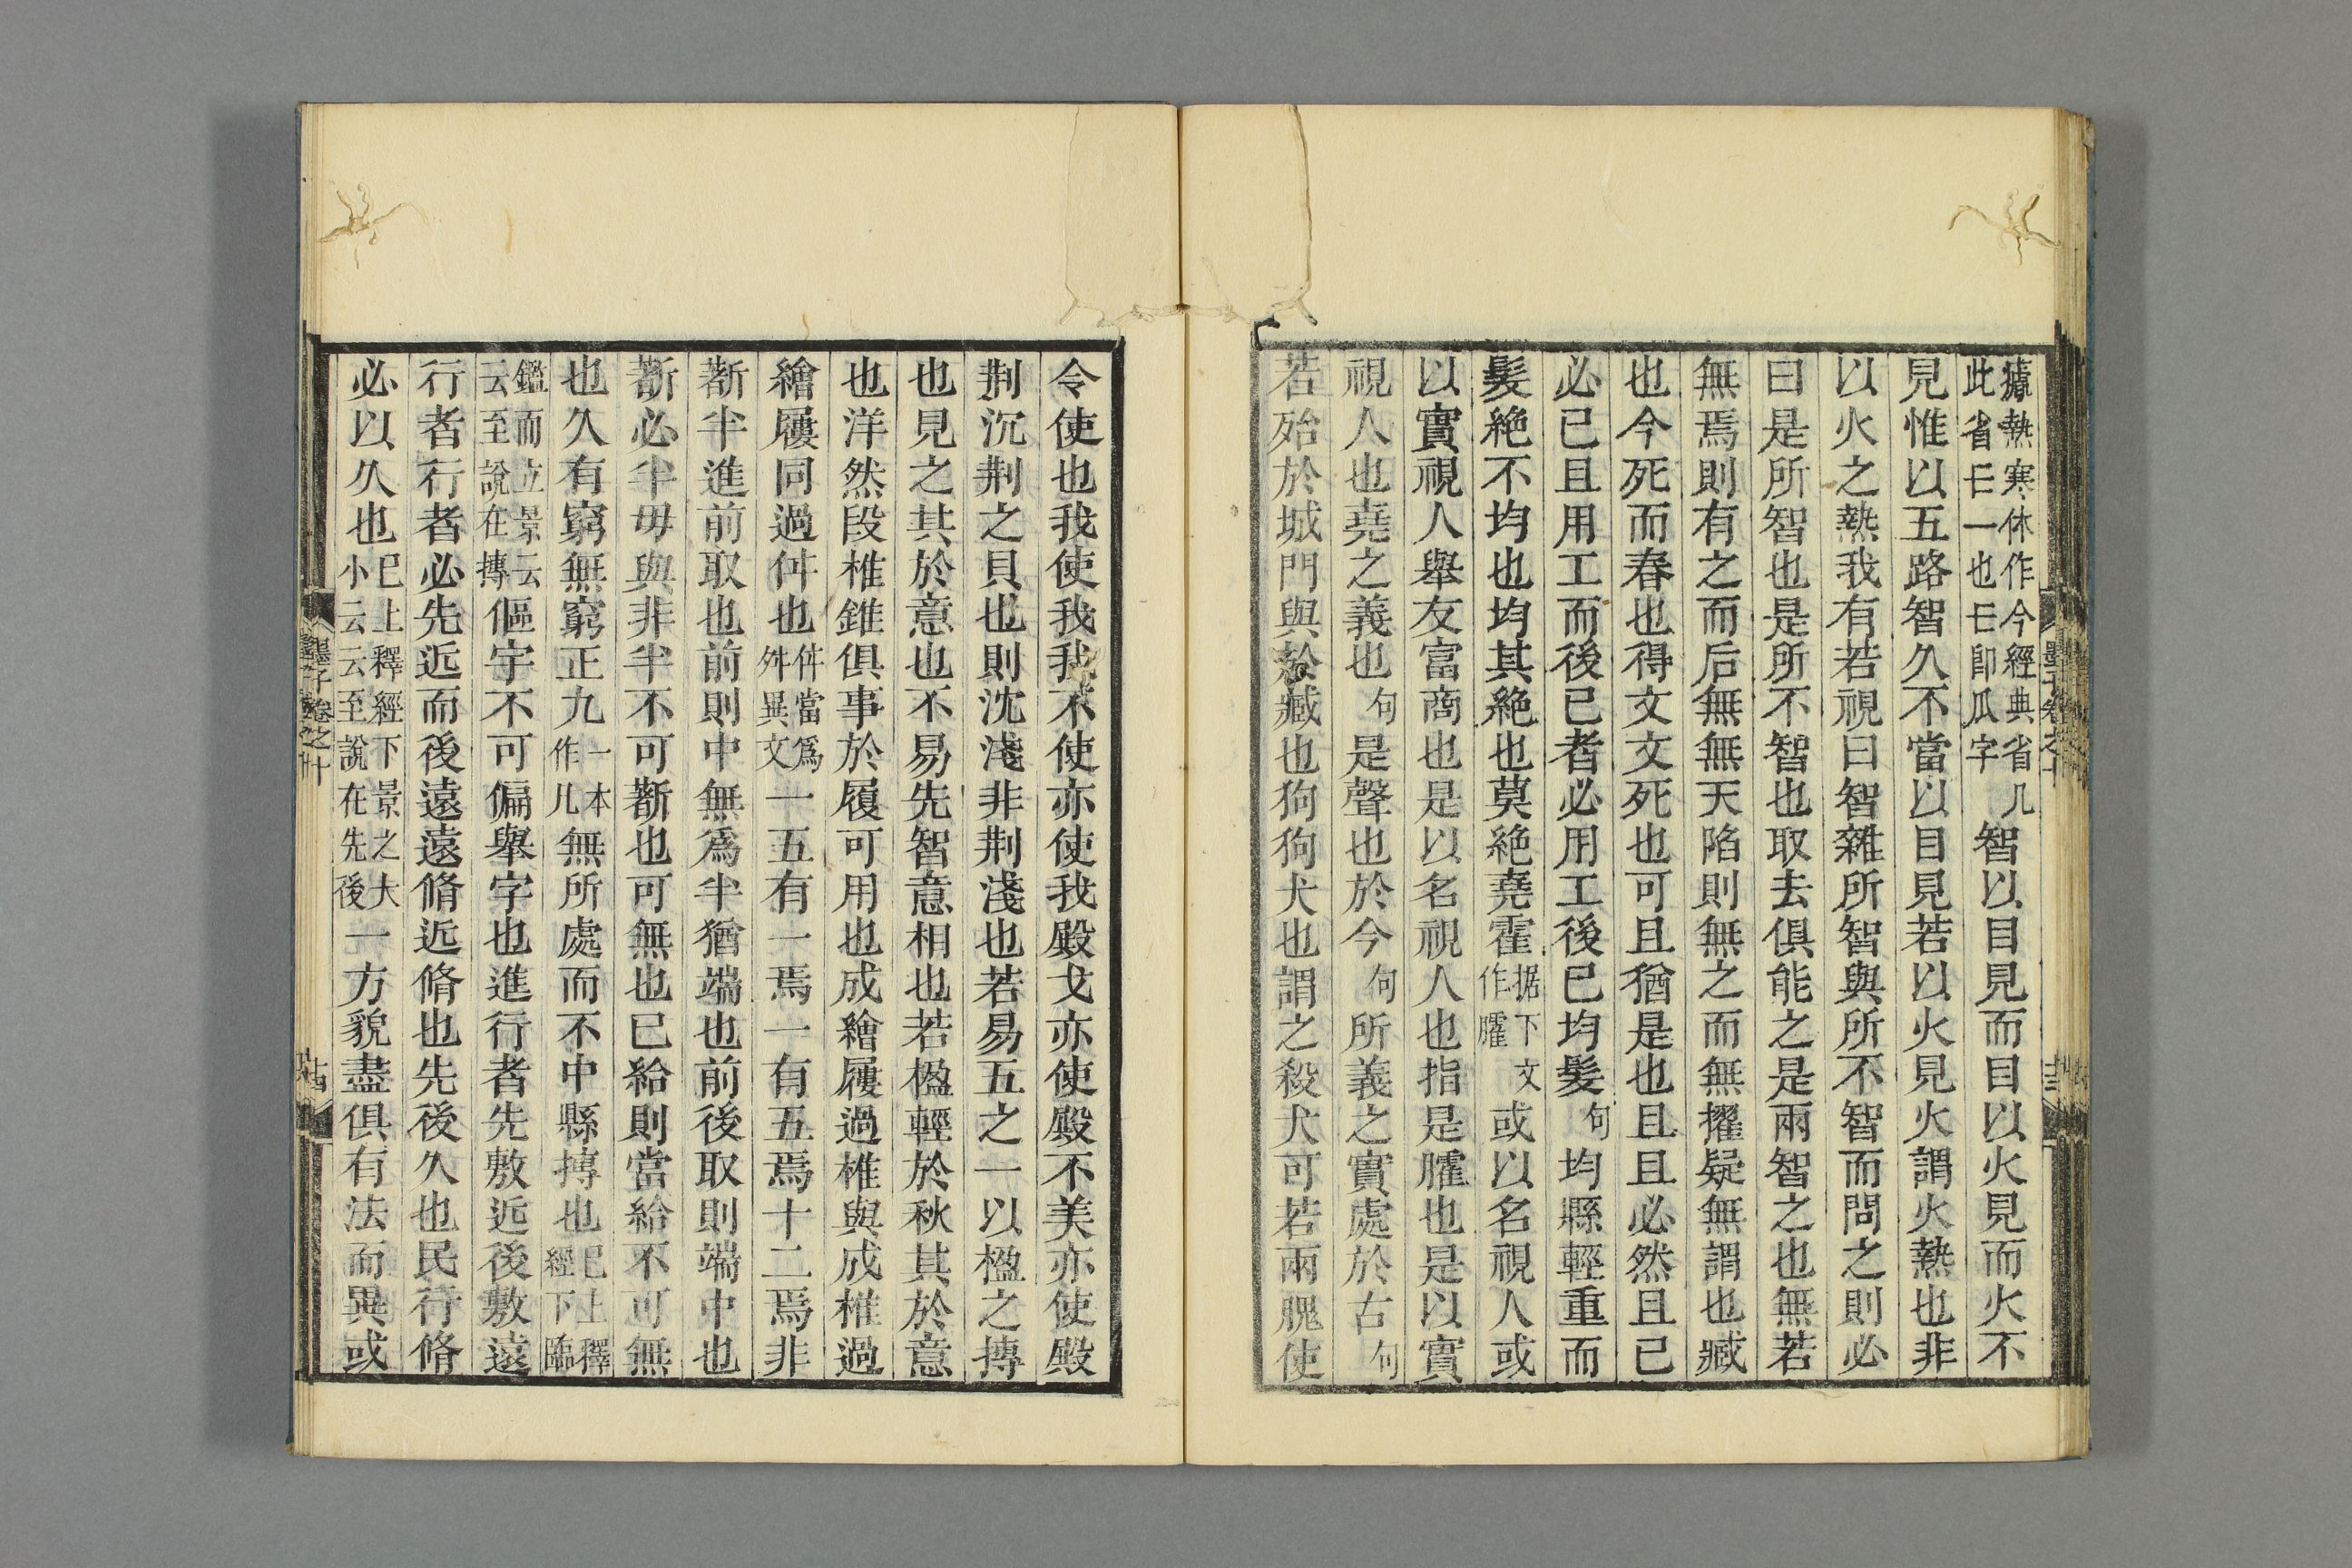 瘧熱寒休作今經典省几此省㠪一也㠪卽瓜字智以目見而目以火見而火不
見惟以五路智久不當以目見若以火見火謂火熱也非
以火之熱我有若視曰智雜所智與所不智而問之則必
曰是所智也是所不智也取去俱能之是兩智之也無若
無焉則有之而后無無天陷則無之而無擢疑無謂也臧
也今死而春也得文文死也可且猶是也且且必然且已
必已且用工而後已者必用工後已均髮句均縣輕重而
髮絶不均也均其絶也莫絶堯霍据下文作臛或以名視人或
以實視人舉友富商也是以名視人也指是臛也是以實
視人也堯之義也句是聲也於今句所義之實處於古句
若殆於城門與於臧也狗狗犬也謂之殺犬可若兩䏶使
令使也我使我我不使亦使我殿戈亦使殿不美亦使殿
荆沉荆之貝也則沈淺非荆淺也若易五之一以楹之摶
也見之其於意也不易先智意相也若楹輕於秋其於意
也洋然段椎錐俱事於履可用也成繪屨過椎與成椎過
繪屨同過仵也仵當爲舛異文一五有一焉一有五焉十二焉非
斱半進前取也前則中無爲半猶端也前後取則端中也
斱必半毋與非半不可斱也可無也已給則當給不可無
也久有窮無窮正九一本作凡無所處而不中縣摶也已上釋經下臨
鑑而立景云云至說在摶傴宇不可偏舉字也進行者先敷近後敷遠
行者行者必先近而後遠遠脩近脩也先後久也民行脩
必以久也已上釋經下景之大小云云至說在先後一方貌盡俱有法而異或
墨子卷之十
十四
墨子卷之十
十三